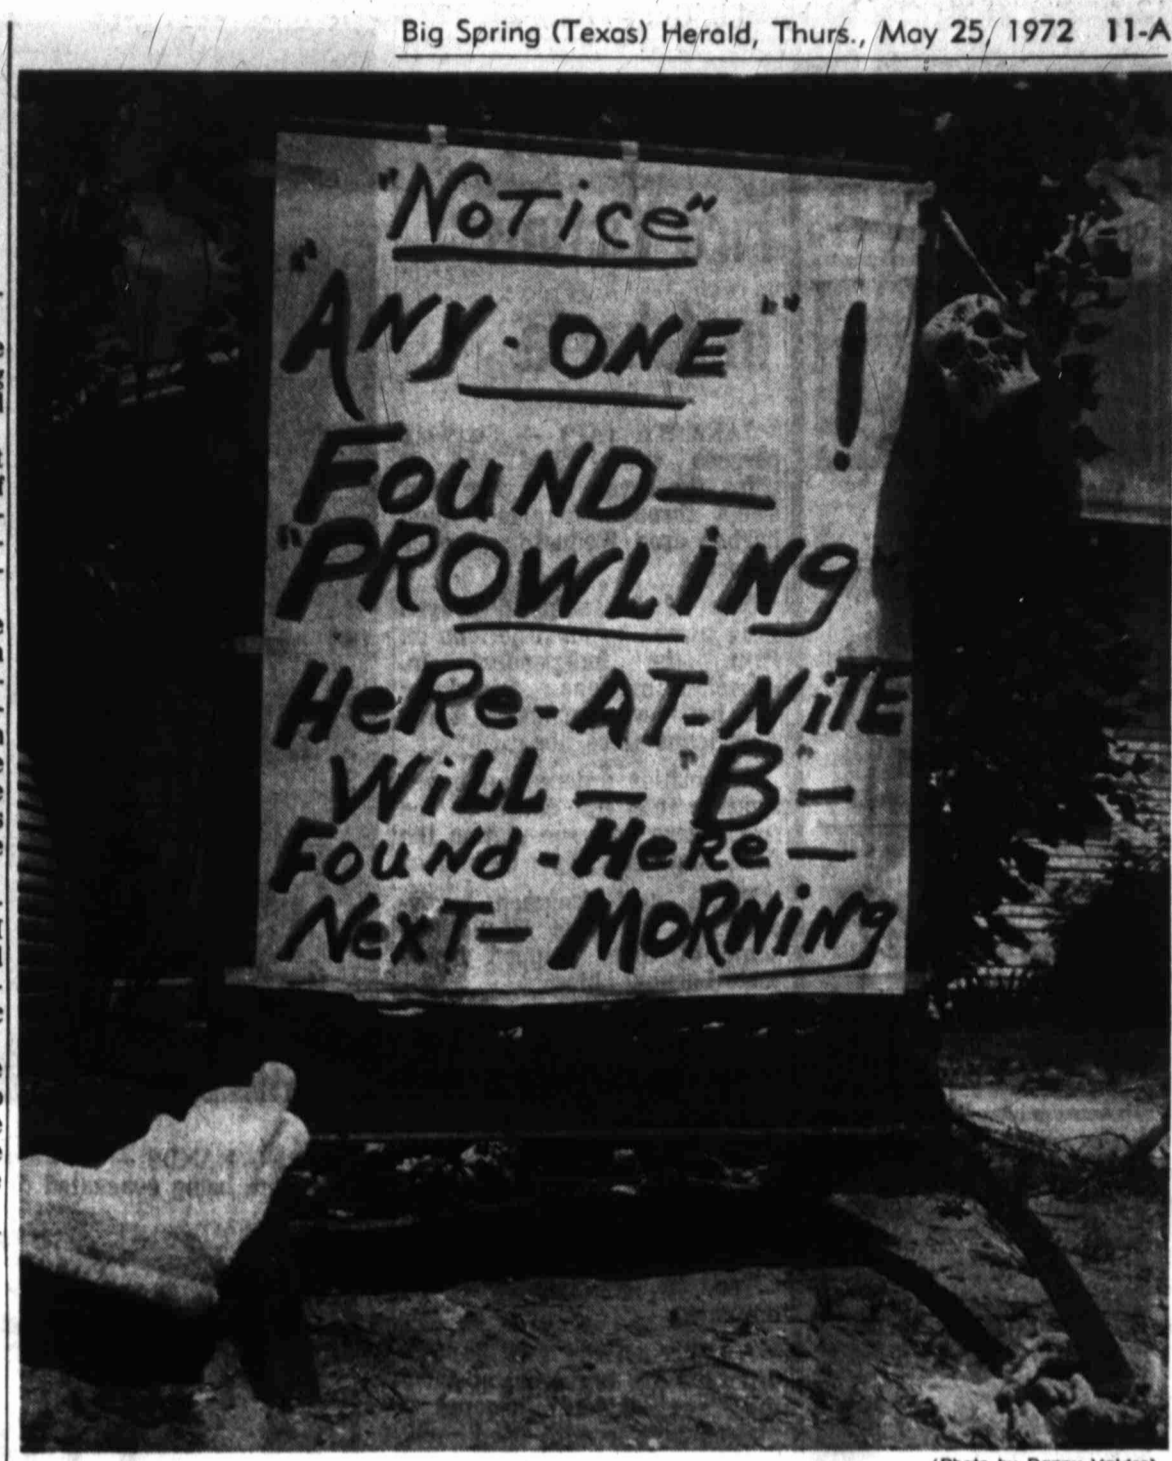 Big Spring (Texas) Herald, Thurs., May 25, 1972 11-A
"NoTice"
"ANY-ONE" !
FouND—
"PROWLiNg
HeRe-AT-NiTE
WiLL — "B" —
FouNd-HeRe —
NexT— MORNiNg